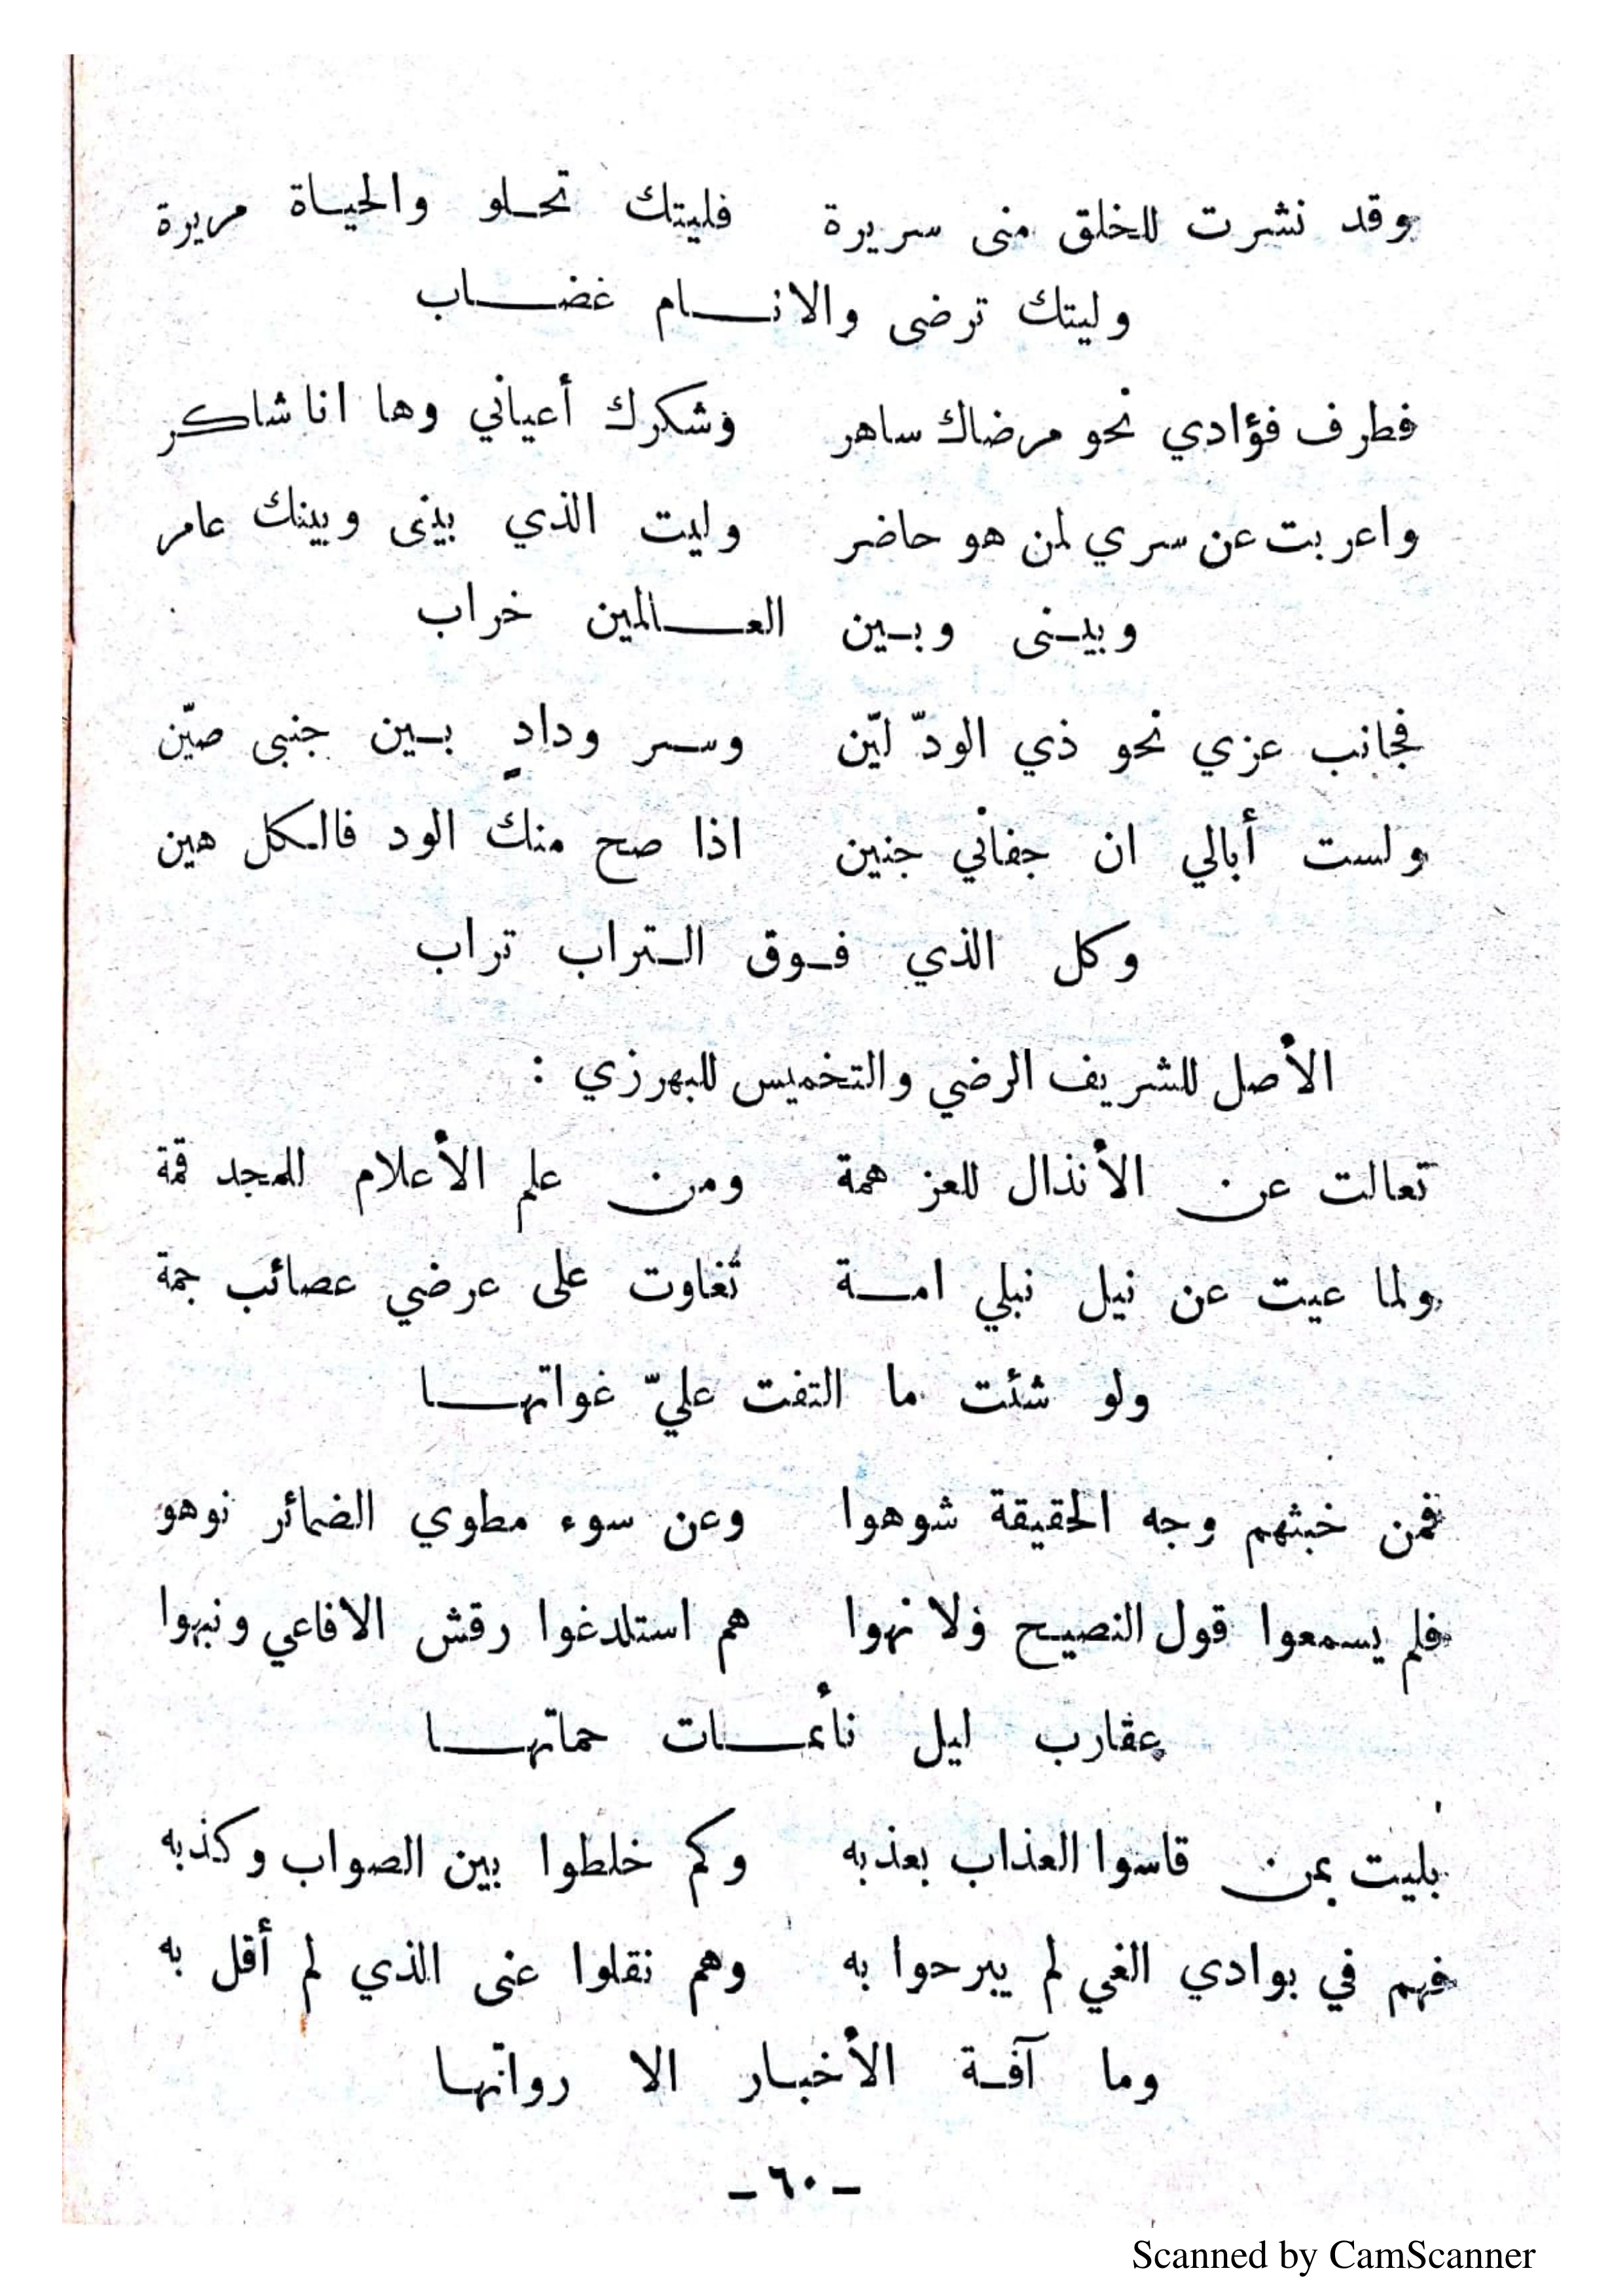 وقد نشرت للخلق منى سريرة فليتك تحلو والحياة مريرة
وليتك ترضى والانام غضاب
فطرف فؤادي نحو مرضاك ساهر وشكرك أعياني وها انا شاكر
واعربت عن سري لمن هو حاضر وليت الذي بينى وبينك عامر
وبينى وبين العالمين خراب
فجانب عزي نحو ذي الودّ ليّن وسر ودادٍ بين جنبى صيّن
ولست أبالي ان جفاني جنين اذا صح منك الود فالكل هين
وكل الذي فوق التراب تراب
الأصل للشريف الرضي والتخميس للبهرزي :
تعالت عن الأنذال للعز همة ومن علم الأعلام للمجد قمة
ولما عيت عن نيل نبلي امة تغاوت على عرضي عصائب جمة
ولو شئت ما التفت عليّ غواتها
فمن خبثهم وجه الحقيقة شوهوا وعن سوء مطوي الضمائر نوهو
فلم يسمعوا قول النصيح ولا نهوا هم استلدغوا رقش الافاعي ونبهوا
عقارب ليل نأئمات حماتها
بليت بمن قاسوا العذاب بعذبه وكم خلطوا بين الصواب وكذبه
فهم في بوادي الغي لم يبرحوا به وهم نقلوا عنى الذي لم أقل به
وما آفة الأخبار الا رواتها
– ٦٠ –
Scanned by CamScanner